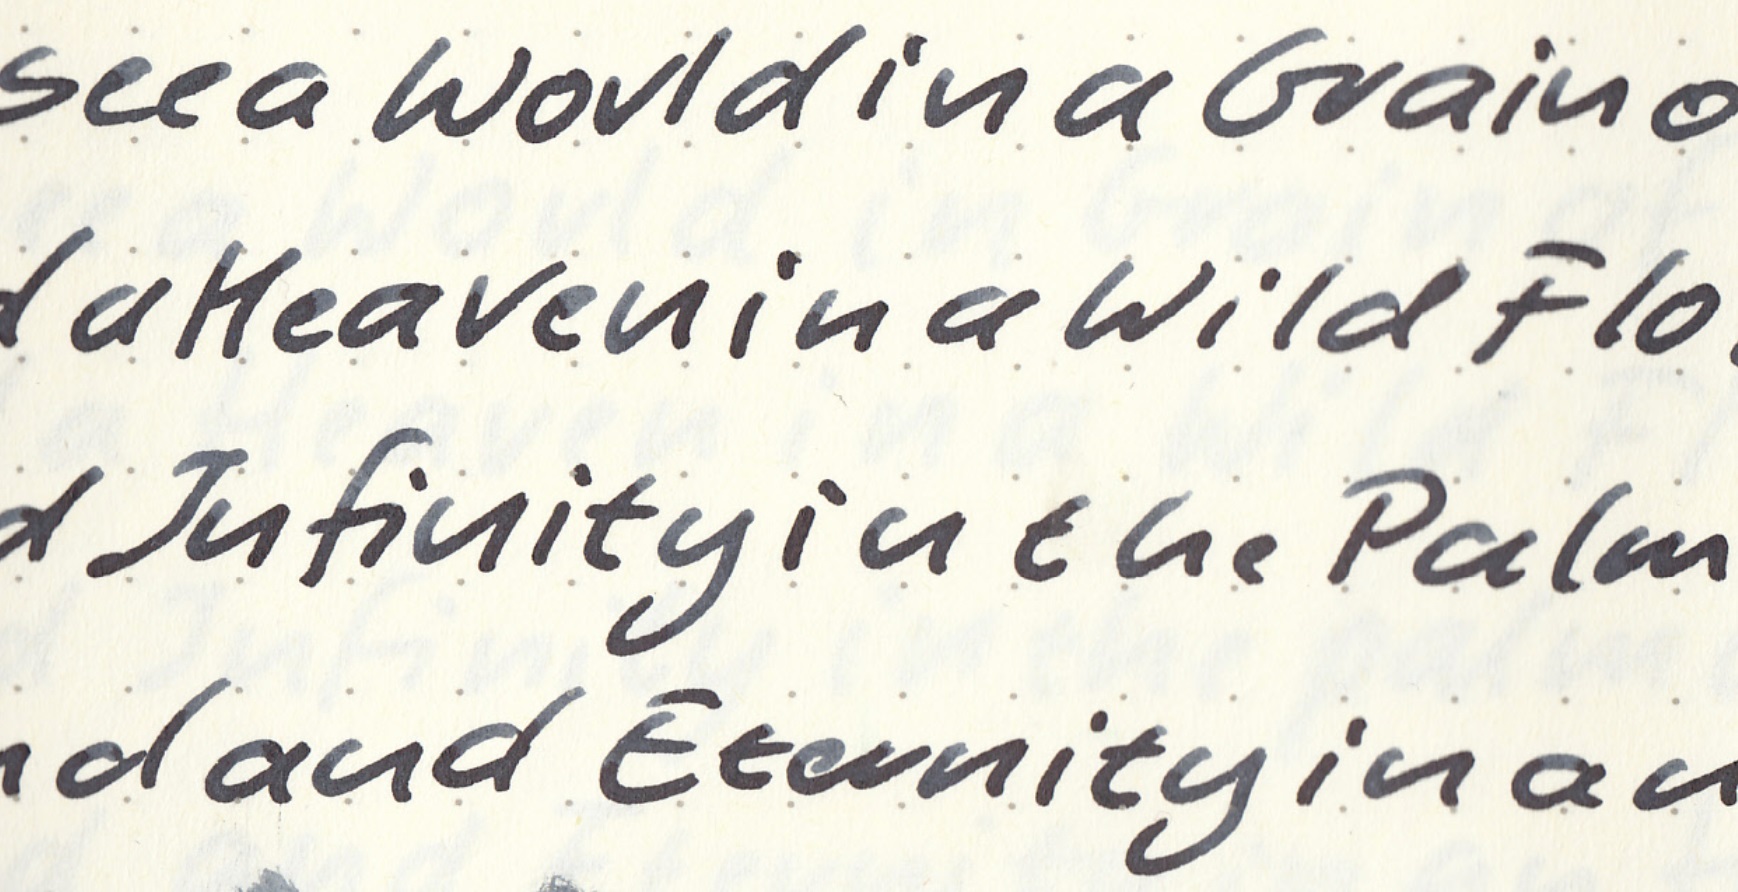 see a World in a Grain o
d a Heaven in a Wild Flo
d Infinity in the Palm
nd and Eternity in an